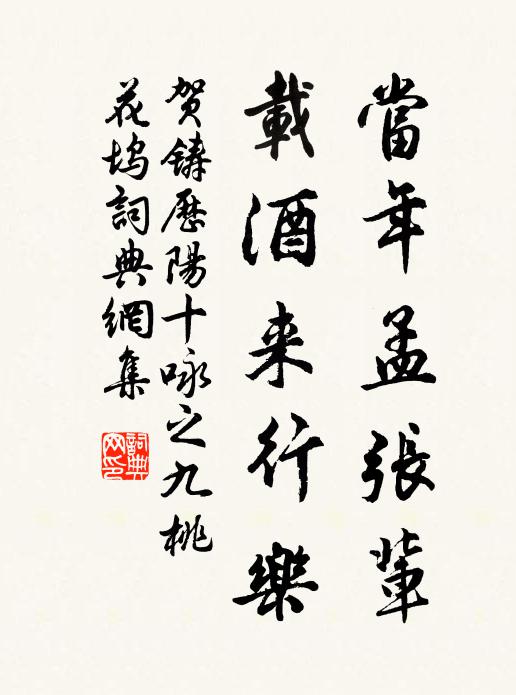 當年孟張輩
載酒来行樂
賀鑄歷陽十咏之九桃
花塢詞典網集
詞典网印